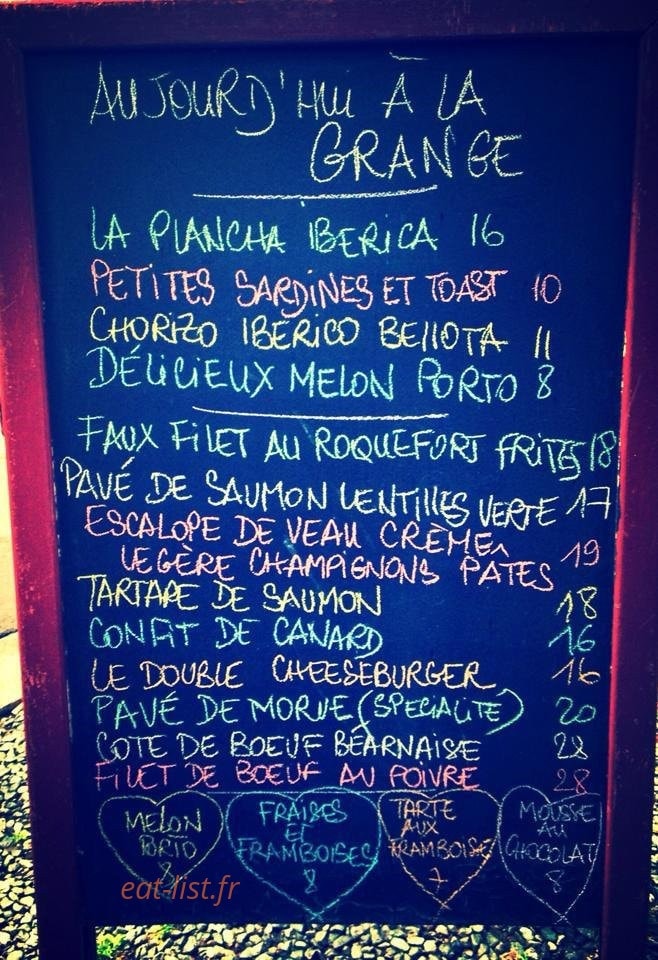 AUJOURD'HUI À LA
GRANGE
LA PLANCHA IBERICA 16
PETITES SARDINES ET TOAST 10
CHORIZO IBERICO BELLOTA 11
DÉLICIEUX MELON PORTO 8
FAUX FILET AU ROQUEFORT FRITES 18
PAVÉ DE SAUMON LENTILLES VERTE 17
ESCALOPE DE VEAU CRÈME
LEGÈRE CHAMPIGNONS PÂTES 19
TARTARE DE SAUMON 18
CONFIT DE CANARD 16
LE DOUBLE CHEESEBURGER 16
PAVÉ DE MORUE (SPECIALITÉ) 20
COTE DE BOEUF BÉARNAISE 28
FILET DE BOEUF AU POIVRE 28
MELON
BRIO
8
FRAISES
ET
FRAMBOISES
8
TARTE
AUX
FRAMBOISE
7
MOUSSE
AU
CHOCOLAT
8
eat-list.fr